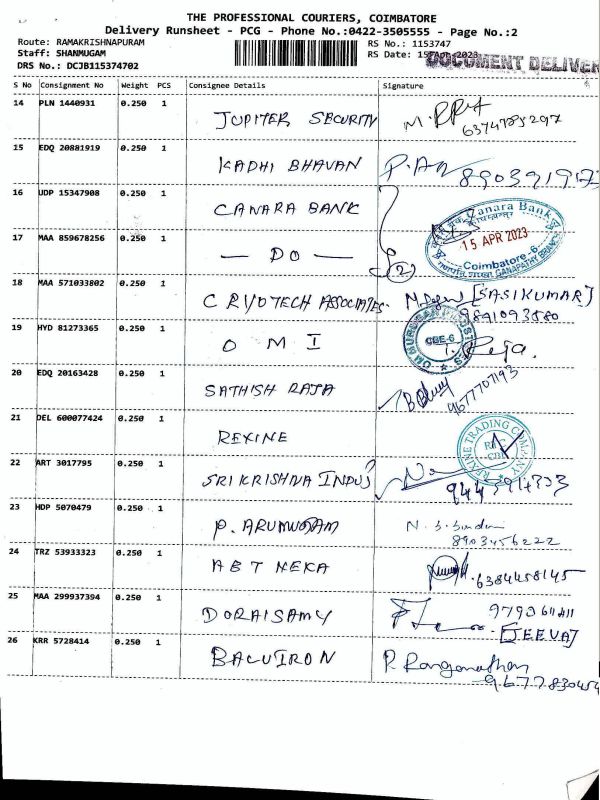 THE PROFESSIONAL COURIERS, COIMBATORE
Delivery Runsheet - PCG - Phone No.:0422-3505555 - Page No.:2
Route: RAMAKRISHNAPURAM RS No.: 1153747
Staff: SHANMUGAM RS Date: 15-Apr-2023
DRS No.: DCJB115374702 DOCUMENT DELIVER
S No Consignment No Weight PCS Consignee Details Signature
14 PLN 1440931 0.250 1 JUPITER SECURITY
15 EDQ 20881919 0.250 1 KADHI BHAVAN
16 UDP 15347908 0.250 1 CANARA BANK
Canara Bank
15 APR 2023
Coimbatore-6
GANAPATHY BRANCH
17 MAA 859678256 0.250 1 — DO — (2)
18 MAA 571033802 0.250 1 CRYOTECH ASSOCIATES. [SASIKUMAR]
19 HYD 81273365 0.250 1 O M I T. Reja.
CBE-6
20 EDQ 20163428 0.250 1 SATHISH RAJA 9677707193
21 DEL 600077424 0.250 1 REXINE
REXINE TRADING COMPANY
CBE
22 ART 3017795 0.250 1 SRI KRISHNA INDUS
23 HDP 5070479 0.250 1 P. ARUMUGAM 8903456222
24 TRZ 53933323 0.250 1 ABT NEKA 6384458145
25 MAA 299937394 0.250 1 DORAISAMY
[JEEVA]
26 KRR 5728414 0.250 1 BALUIRON R Ranganathan
9677830454